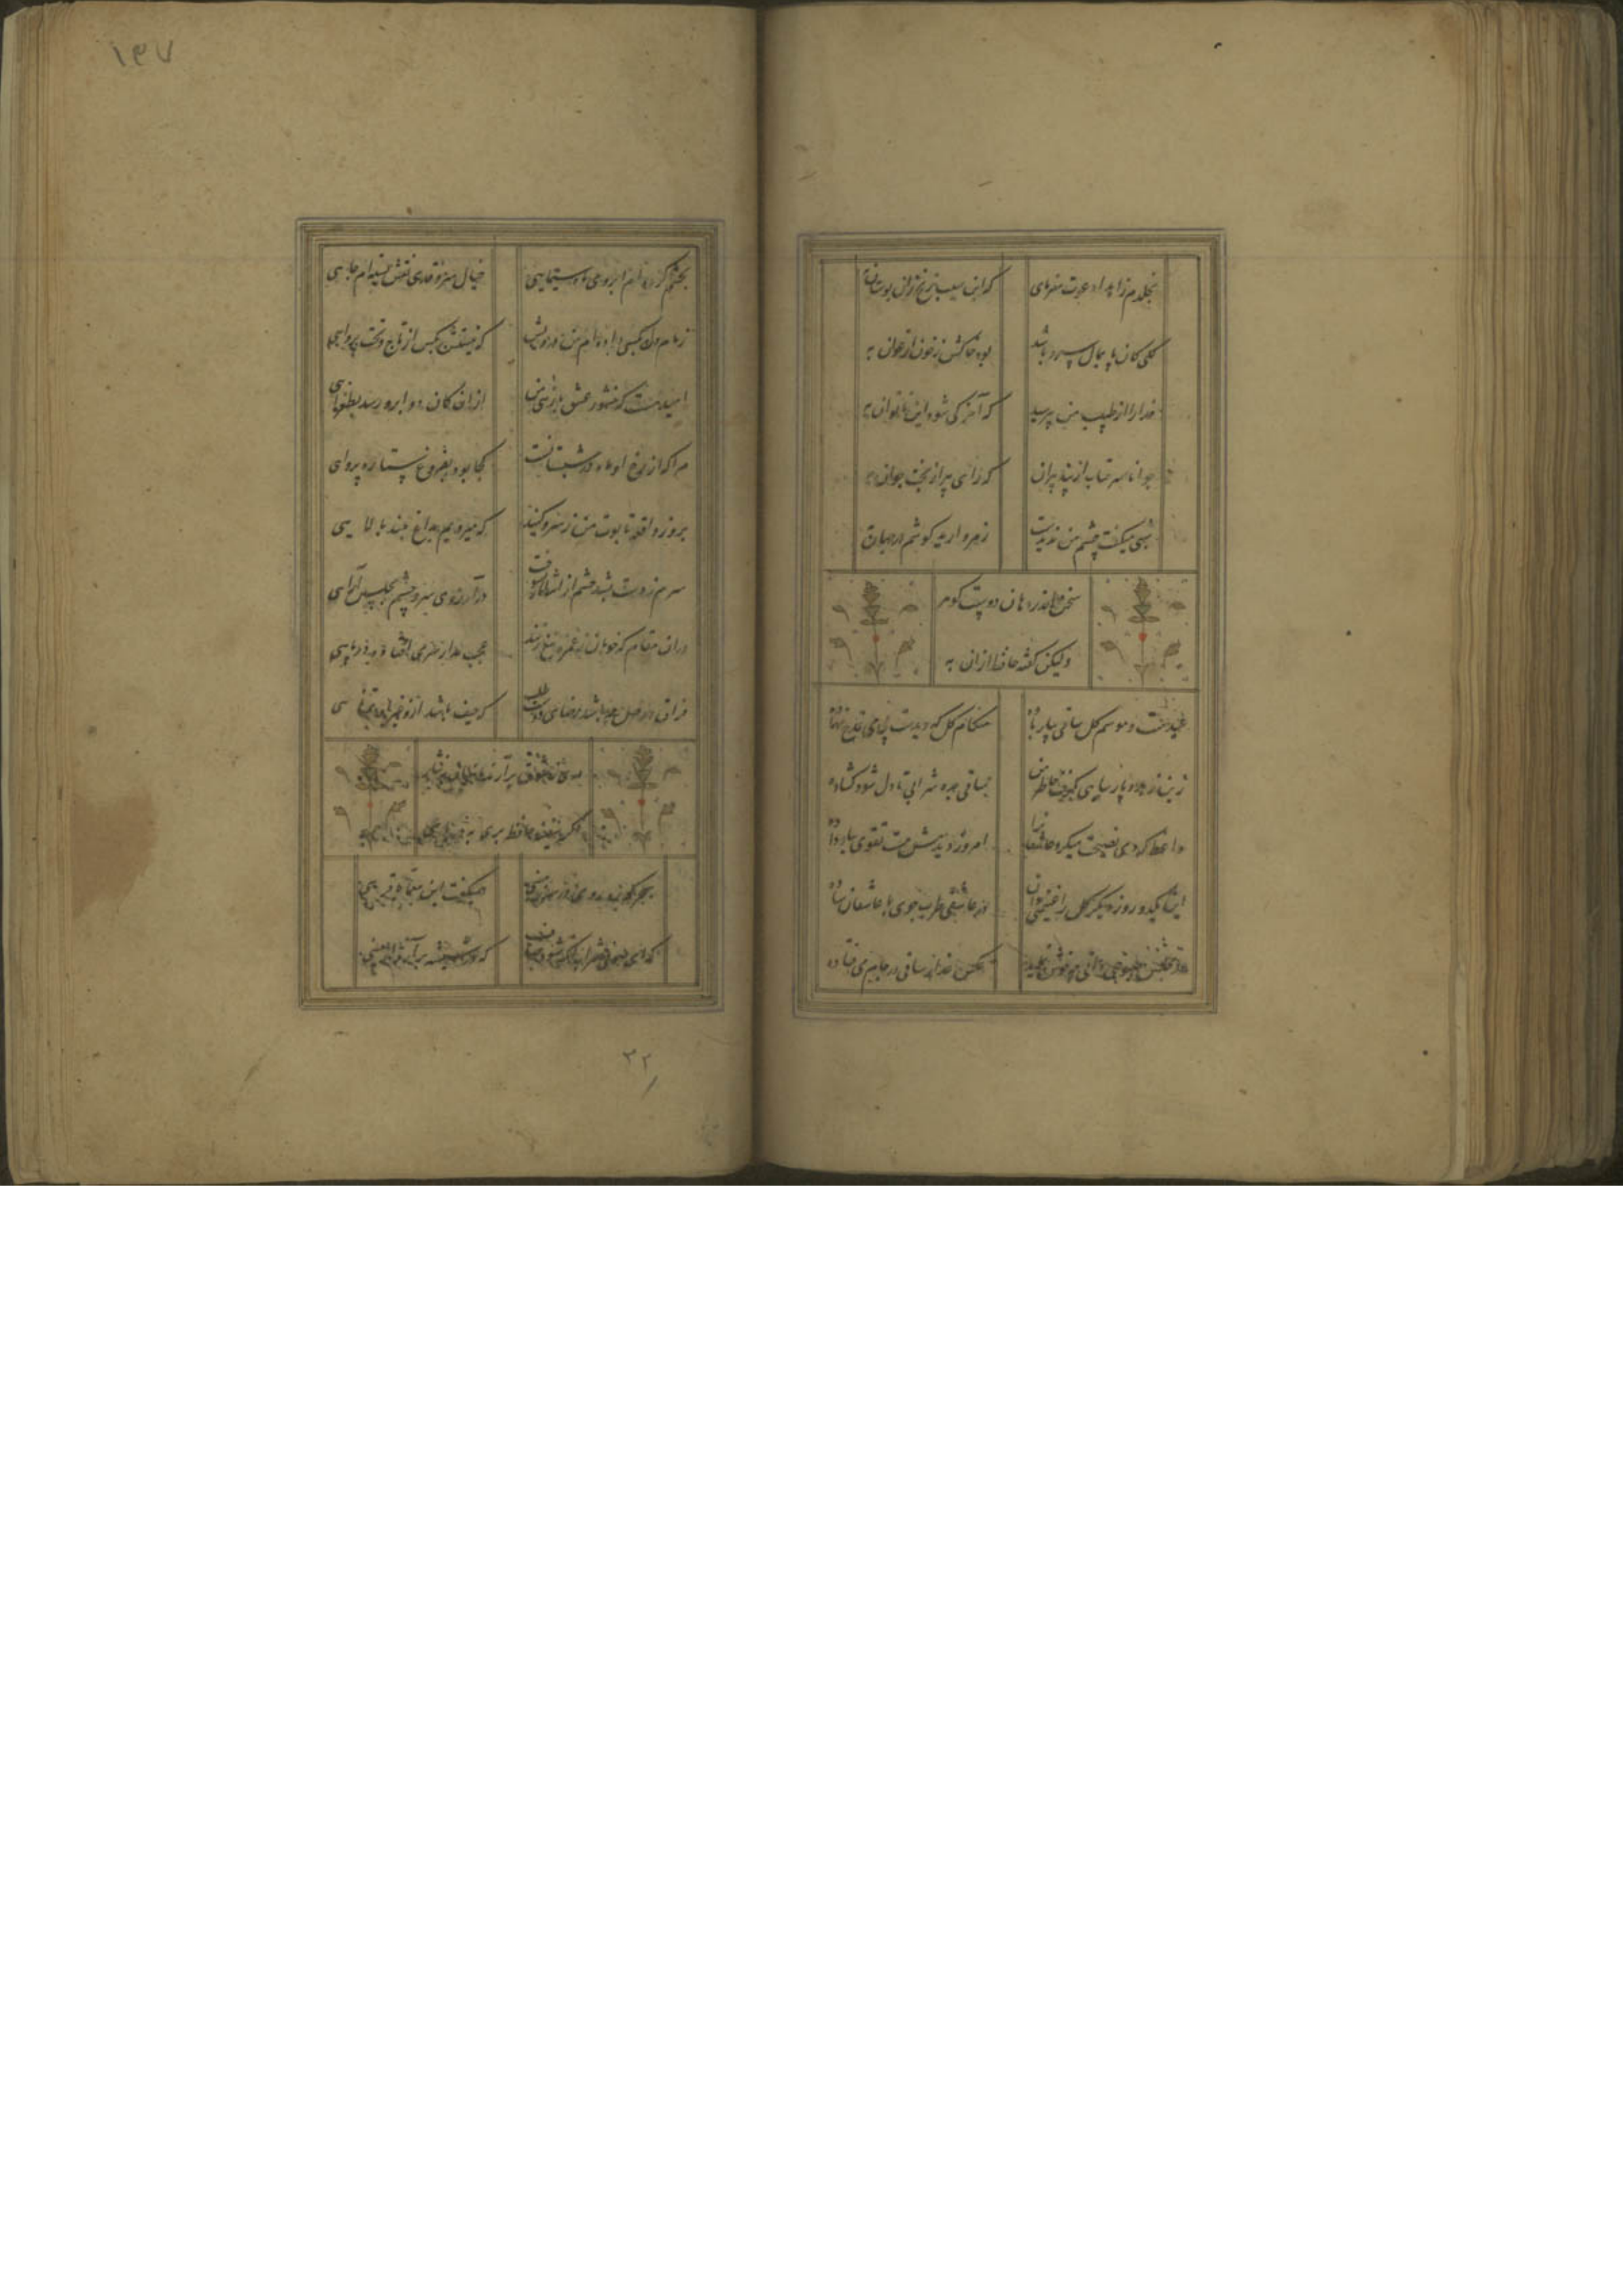 بخلدم زاهدا دعوت مفرمای که این سیب زنخ زان بوستان به
گلی کان پایمال سرو ما شد بود خاکش ز خون ارغوان به
خدا را از طبیب من بپرسید که آخر کی شود این ناتوان به
جوانا سر متاب از پند پیران که رای پیر از بخت جوان به
شبی میگفت چشم من ندیدست ز مروارید گوشم در جهان به
سخن اندر دهان دوست گوهر
ولیکن گفته حافظ از آن به
عیدست و موسم گل ساقی بیار باده هنگام گل که دیدست بی می قدح نهاده
زین زهد و پارسایی بگرفت خاطر من ساقی بده شرابی تا دل شود گشاده
واعظ که دی نصیحت میکرد عاشقانرا امروز دیدمش مست تقوی بباد داده
این یکدو روز دیگر گل را غنیمتی دان گر عاشقی طرب جوی با عاشقان ساده
عکس عذار ساقی در جام می فتاده
۱۳۷
بچشم کرده ام ابروی ماه سیمایی خیال سرو قدی نقش بسته ام جایی
زمام دل بکسی داده ام من درویش که نیستش بکس از تاج و تخت پروایی
امید هست که منشور عشق بازی من از آن کمان دو ابرو رسد بطغرایی
مرا که از رخ او ماه در شبستانست کجا بود بفروغ ستاره پروای
بروز واقعه تابوت من ز سرو کنید که میرویم بداغ بلند بالایی
سرم ز دست بشد چشم از انتظار بسوخت در آرزوی سر و چشم مجلس آرایی
در آن مقام که خوبان ز غمزه تیغ زنند عجب مدار سری اوفتاده در پایی
فراق و وصل چه باشد رضای دوست طلب که حیف باشد ازو غیر او تمنایی
ز شوق برآرند ماهیان بنثار
اگر سفینه حافظ بری بدریایی
سحرگه رهروی در سرزمینی همیگفت این معما با قرینی
که ای صوفی شراب آنگه شود صاف که در شیشه برآرد اربعینی
۳۲